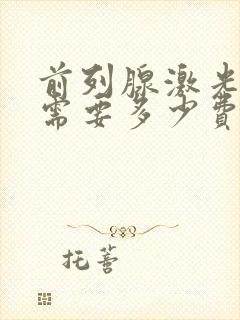 前列腺激光
需要多少费
托蔷